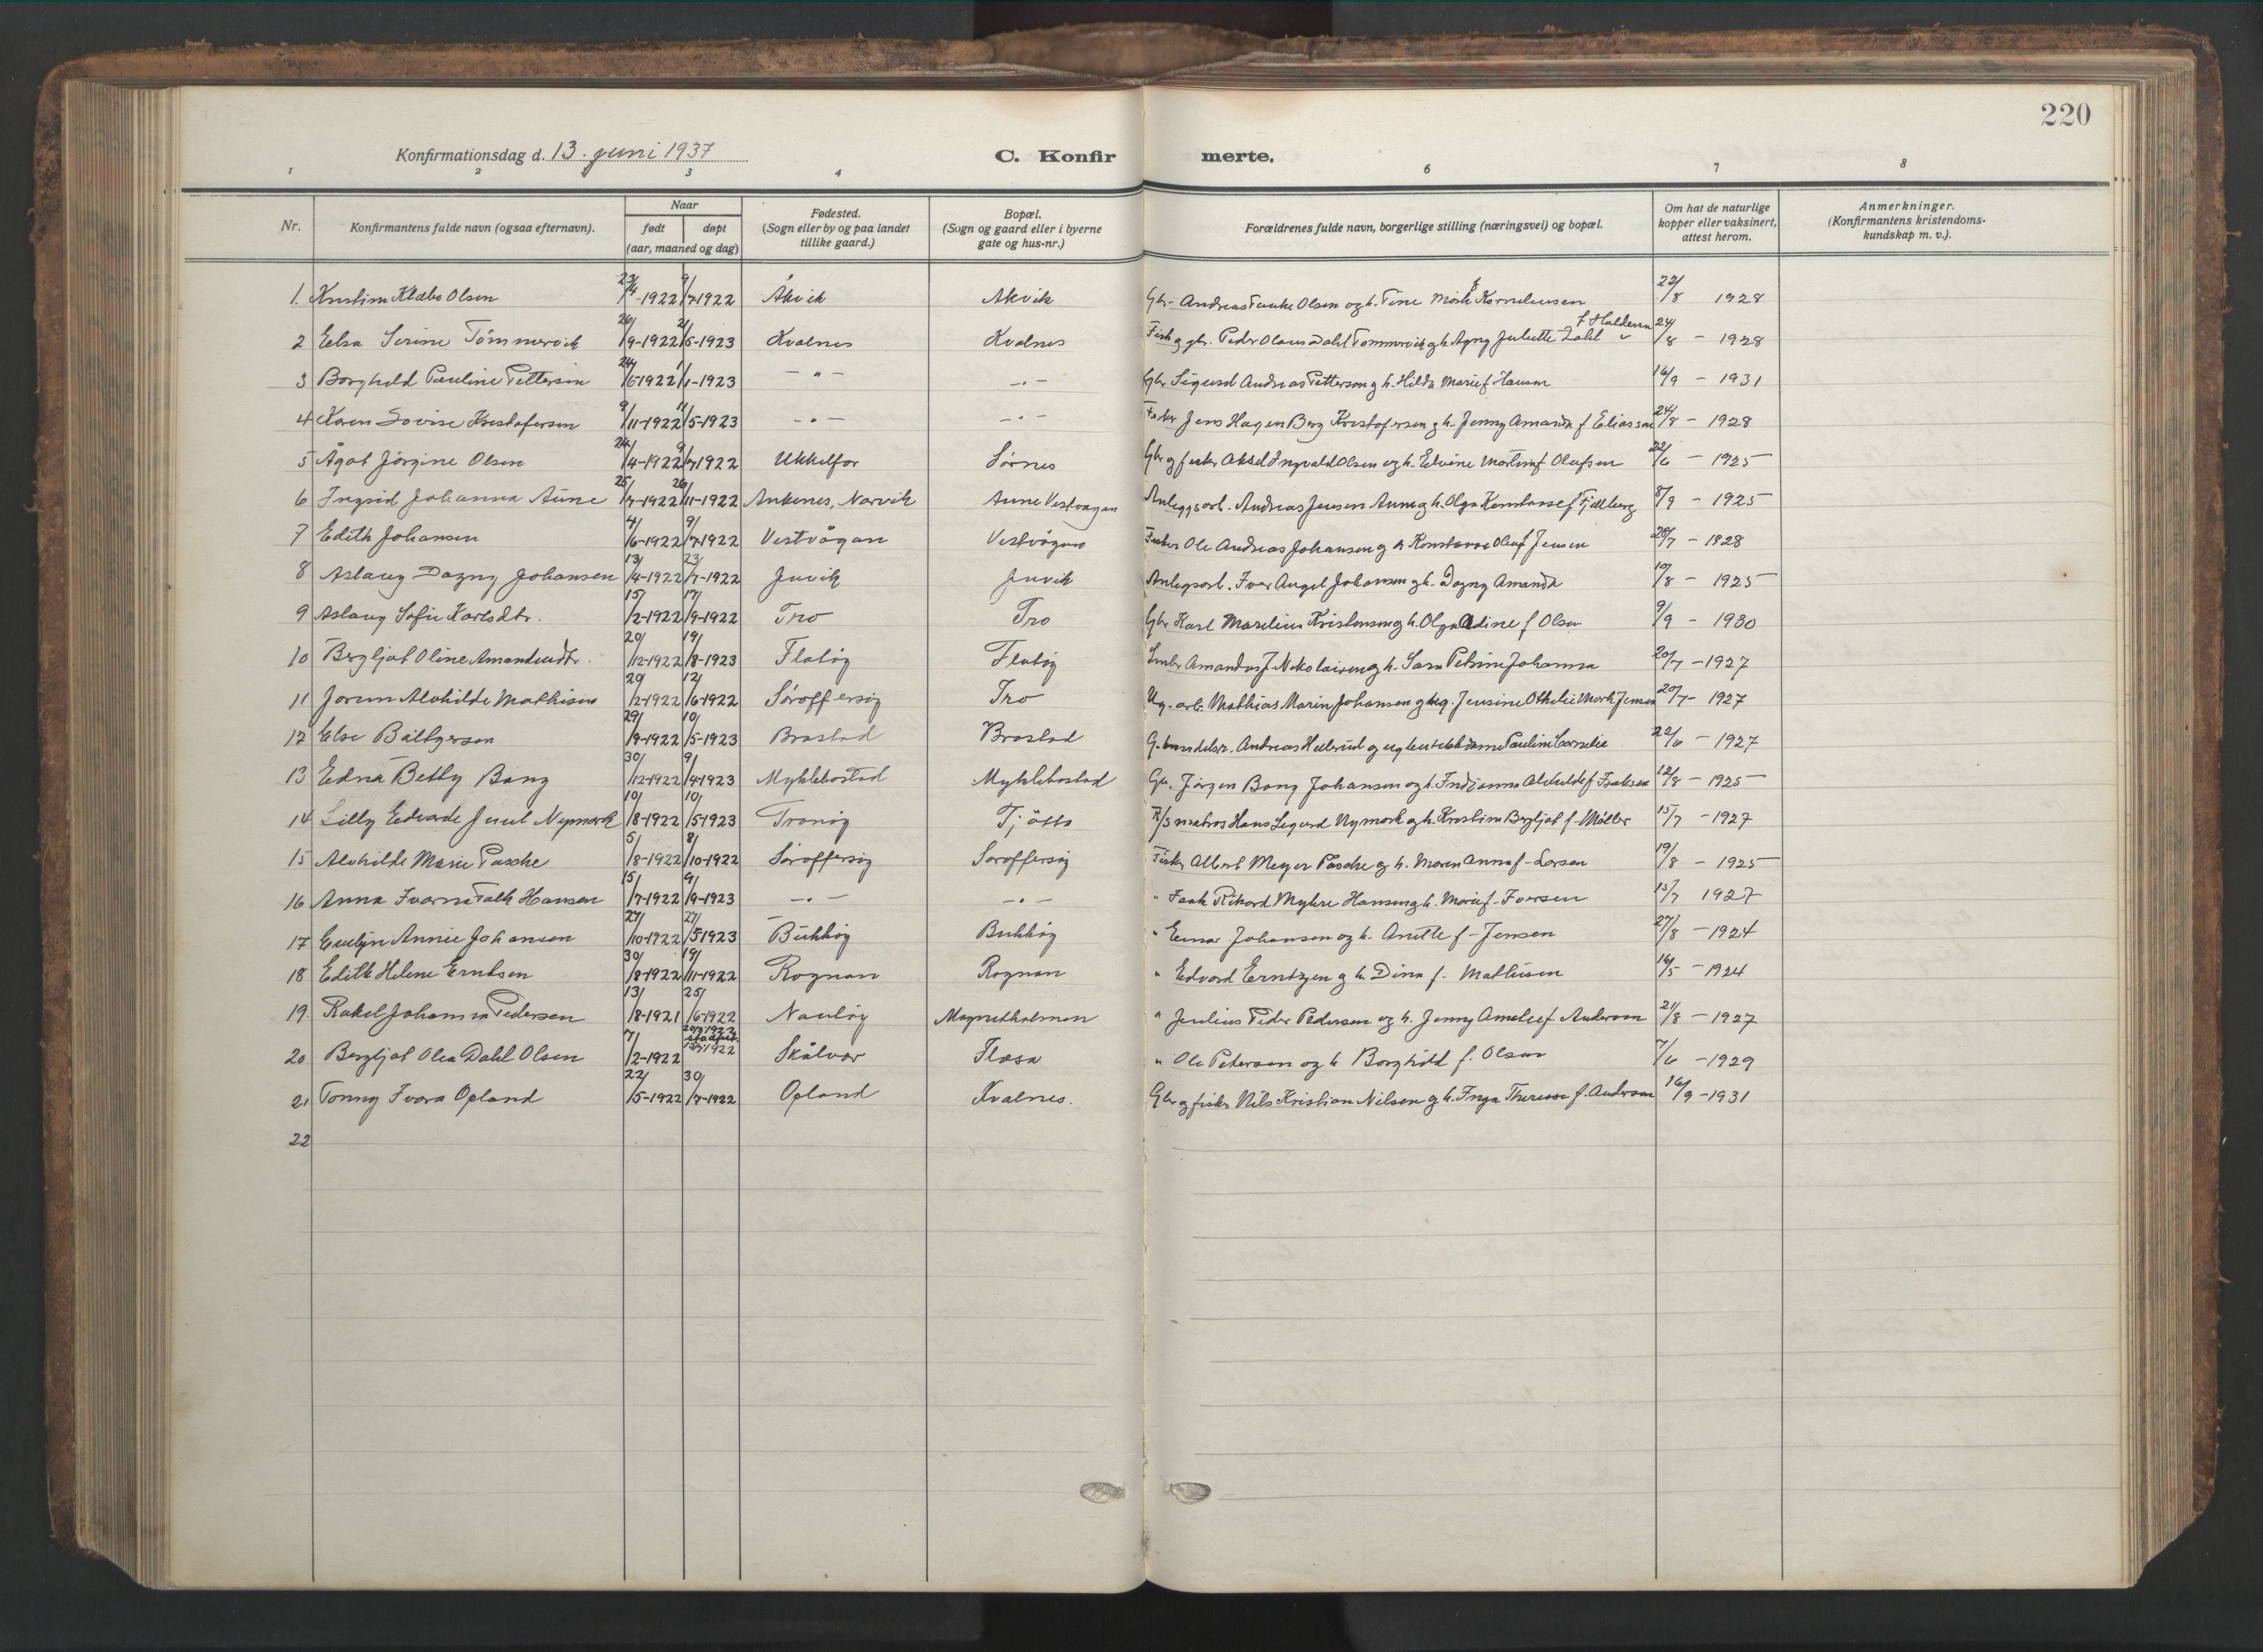 220
Konfirmationsdag d. 13. juni 1937 C. Konfirmerte.
1 2 3 4 6 7 8
Nr. Konfirmantens fulde navn (ogsaa efternavn). Naar født døpt (aar, maaned og dag) Fødested. (Sogn eller by og paa landet tillike gaard.) Bopæl. (Sogn og gaard eller i byerne gate og hus-nr.) Forældrenes fulde navn, borgerlige stilling (næringsvei) og bopæl. Om hat de naturlige kopper eller vaksinert, attest herom. Anmerkninger. (Konfirmantens kristendoms-kundskap m. v.).
1. Kristine Klæbo Olsen 23/4-1922 9/7-1922 Åkvik Åkvik Gbr. Andreas Olsen og h. Tine Kornelinusen 22/8 1928
2 Elsa Serine Tömmervik 26/9-1922 2/5-1923 Kvalnes Kvalnes Fisk. og gbr. Peder Olaus Dahl Tömmervik g h. Agny Juliette Zahl f Haldorsen 24/8 - 1928
3 Borghild Pauline Pettersen 24/6-1922 1/1-1923 - " - - " - Gbr Sigurd Andreas Petterson g h. Hilda Marie f Hansen 16/9 - 1931
4 Karen Lovise Kristofersen 9/11-1922 11/5-1923 - " - - " - Fisker Jens Hagen Berg Kristofersen g h. Jenny Amanda f Eliassen 24/8 - 1928
5 Ågot Jörgine Olsen 24/4-1922 9/7-1922 Ukkelfor Sørnes Gbr g fisker Aksel Ingvald Olsen og h. Edvine Martine f Olufsen 22/6 - 1925
6 Ingrid Johanna Aune 25/7-1922 26/11-1922 Ankenes, Narvik Aune Vestvågan Anleggsarb. Andreas Jensen Aune g h. Olga Konstanse f Fjellberg 8/9 - 1925
7 Edith Johansen 4/6-1922 9/7-1922 Vestvågan Vestvågan Fisker Ole Andreas Johansen g h Konstanse Olea f Jensen 28/7 - 1828
8 Aslaug Dagny Johansen 13/4-1922 23/7-1922 Juvik Juvik Anlegsarb. Iver Angel Johansen g h. Dagny Amanda 10/8 - 1925
9 Aslaug Sofie Karlsdtr. 15/2-1922 17/9-1922 Tro Tro Gbr Karl Marelius Kristensen g h. Olga Adine f Olsen 9/9 - 1930
10 Bergljot Oline Amandusdtr. 20/12-1922 19/8-1923 Flatöy Flatöy Smbr Amandus J Nikolaisen g h. Sara Petrine Johanna 20/7 - 1927
11 Jorun Alvhilde Mathisen 20/2-1922 12/6-1922 Söroffersöy Tro Ug. arb. Mathias Marin Johansen g ug. Jensine Othelie Mork Jensen 20/7 - 1927
12 Else Båttgerson 29/9-1922 10/5-1923 Brastad Brastad 22/6 - 1927
13 Edna Betty Bang 30/12-1922 9/4-1923 Myklebostad Myklebostad Gbr. Jörgen Bang Johansen og h. Indianna Alvhilde f Isaksen 12/8 - 1925
14 Lilly Edvarde Juul Nymark 10/8-1922 10/5-1923 Tranöy Tjötta matros Hans Sigurd Nymark og h. Kristine Bergljot f. Möller 15/7 - 1927
15 Alvhilde Marie Pasche 5/8-1922 8/10-1922 Söroffersöy Soroffersöy Fisker Albert Meyer Pasche g h. Maren Anna f. Larsen 19/8 - 1925
16 Anna Ivarna Falk Hansen 15/7-1922 9/9-1923 - " - - " - " Isak Rikard Myhre Hansen g h. Marie f. Iversen 15/7 1927
17 Evelyn Annie Johansen 27/10-1922 27/5-1923 Bukköy Bukköy " Einar Johansen og h. Anette f. Jensen 27/8 - 1924
18 Edith Helene Erntsen 30/8-1922 19/11-1922 Rognan Rognan " Edvard Erntzen g h. Dina f. Mathisen 16/5 - 1924
19 Rakel Johanna Pedersen 13/8-1921 25/6-1922 Nauöy Magnetholmen " Julius Peder Pedersen og h. Jenny Amelie f Anderson 21/8 - 1927
20 Bergljot Olea Dahl Olsen 7/2-1922 stadfest. 1922 Skålvær Flæsa " Ole Petersen og h Borghild f. Olsen 7/6 - 1929
21 Tonny Ivara Opland 22/5-1922 30/7-1922 Opland Kvalnes. Gbr og fisker Nils Kristian Nilsen g h. Inga Therese f. Anderson 16/9 - 1931
22